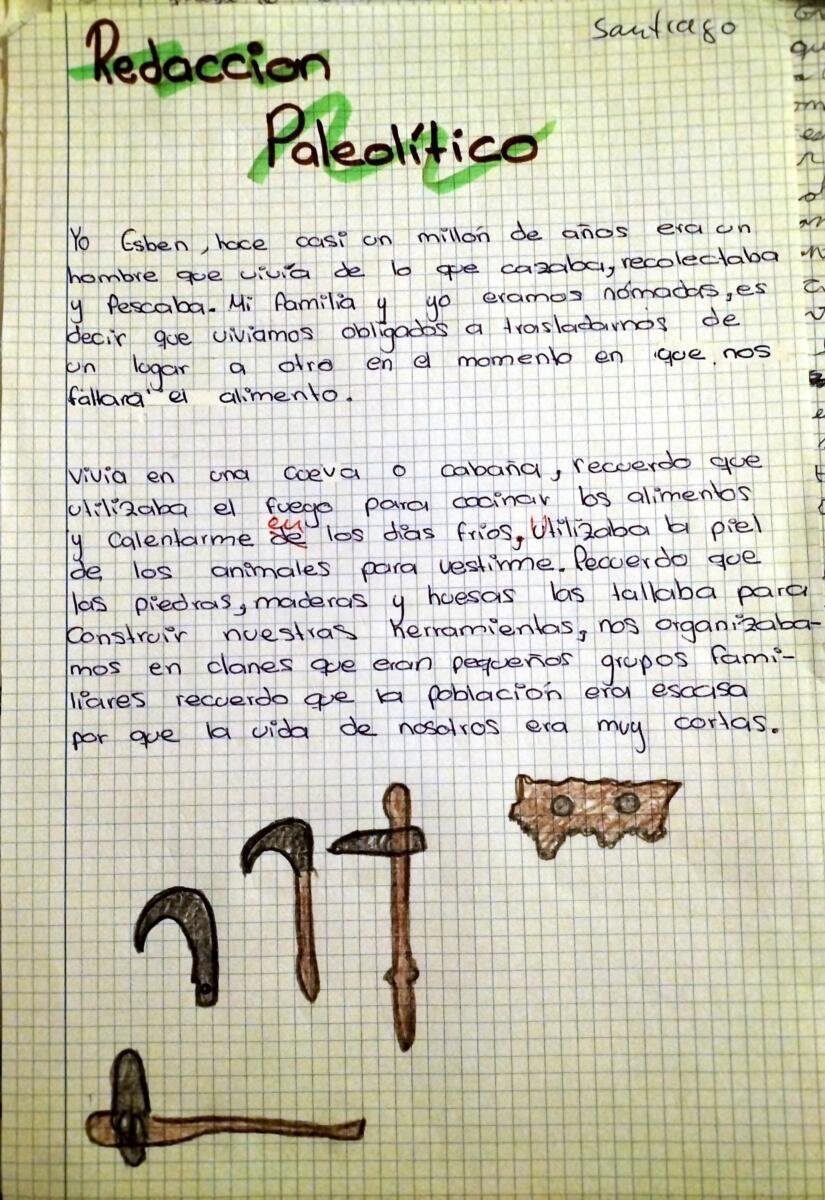 Santiago
Redaccion
Paleolítico
Yo Esben, hace casi un millón de años era un
hombre que vivía de lo que cazaba, recolectaba
y Pescaba. Mi familia y yo eramos nómadas, es
decir que viviamos obligados a trasladarnos de
un lugar a otro en el momento en que nos
fallara el alimento.
Vivia en una cueva o cabaña, recuerdo que
utilizaba el fuego para cocinar los alimentos
y calentarme de en los dias fríos, Utilizaba la piel
de los animales para vestirme. Recuerdo que
las piedras, maderas y huesas las tallaba para
construir nuestras herramientas, nos organizaba-
mos en clanes que eran pequeños grupos fami-
liares recuerdo que la población era escasa
por que la vida de nosotros era muy cortas.